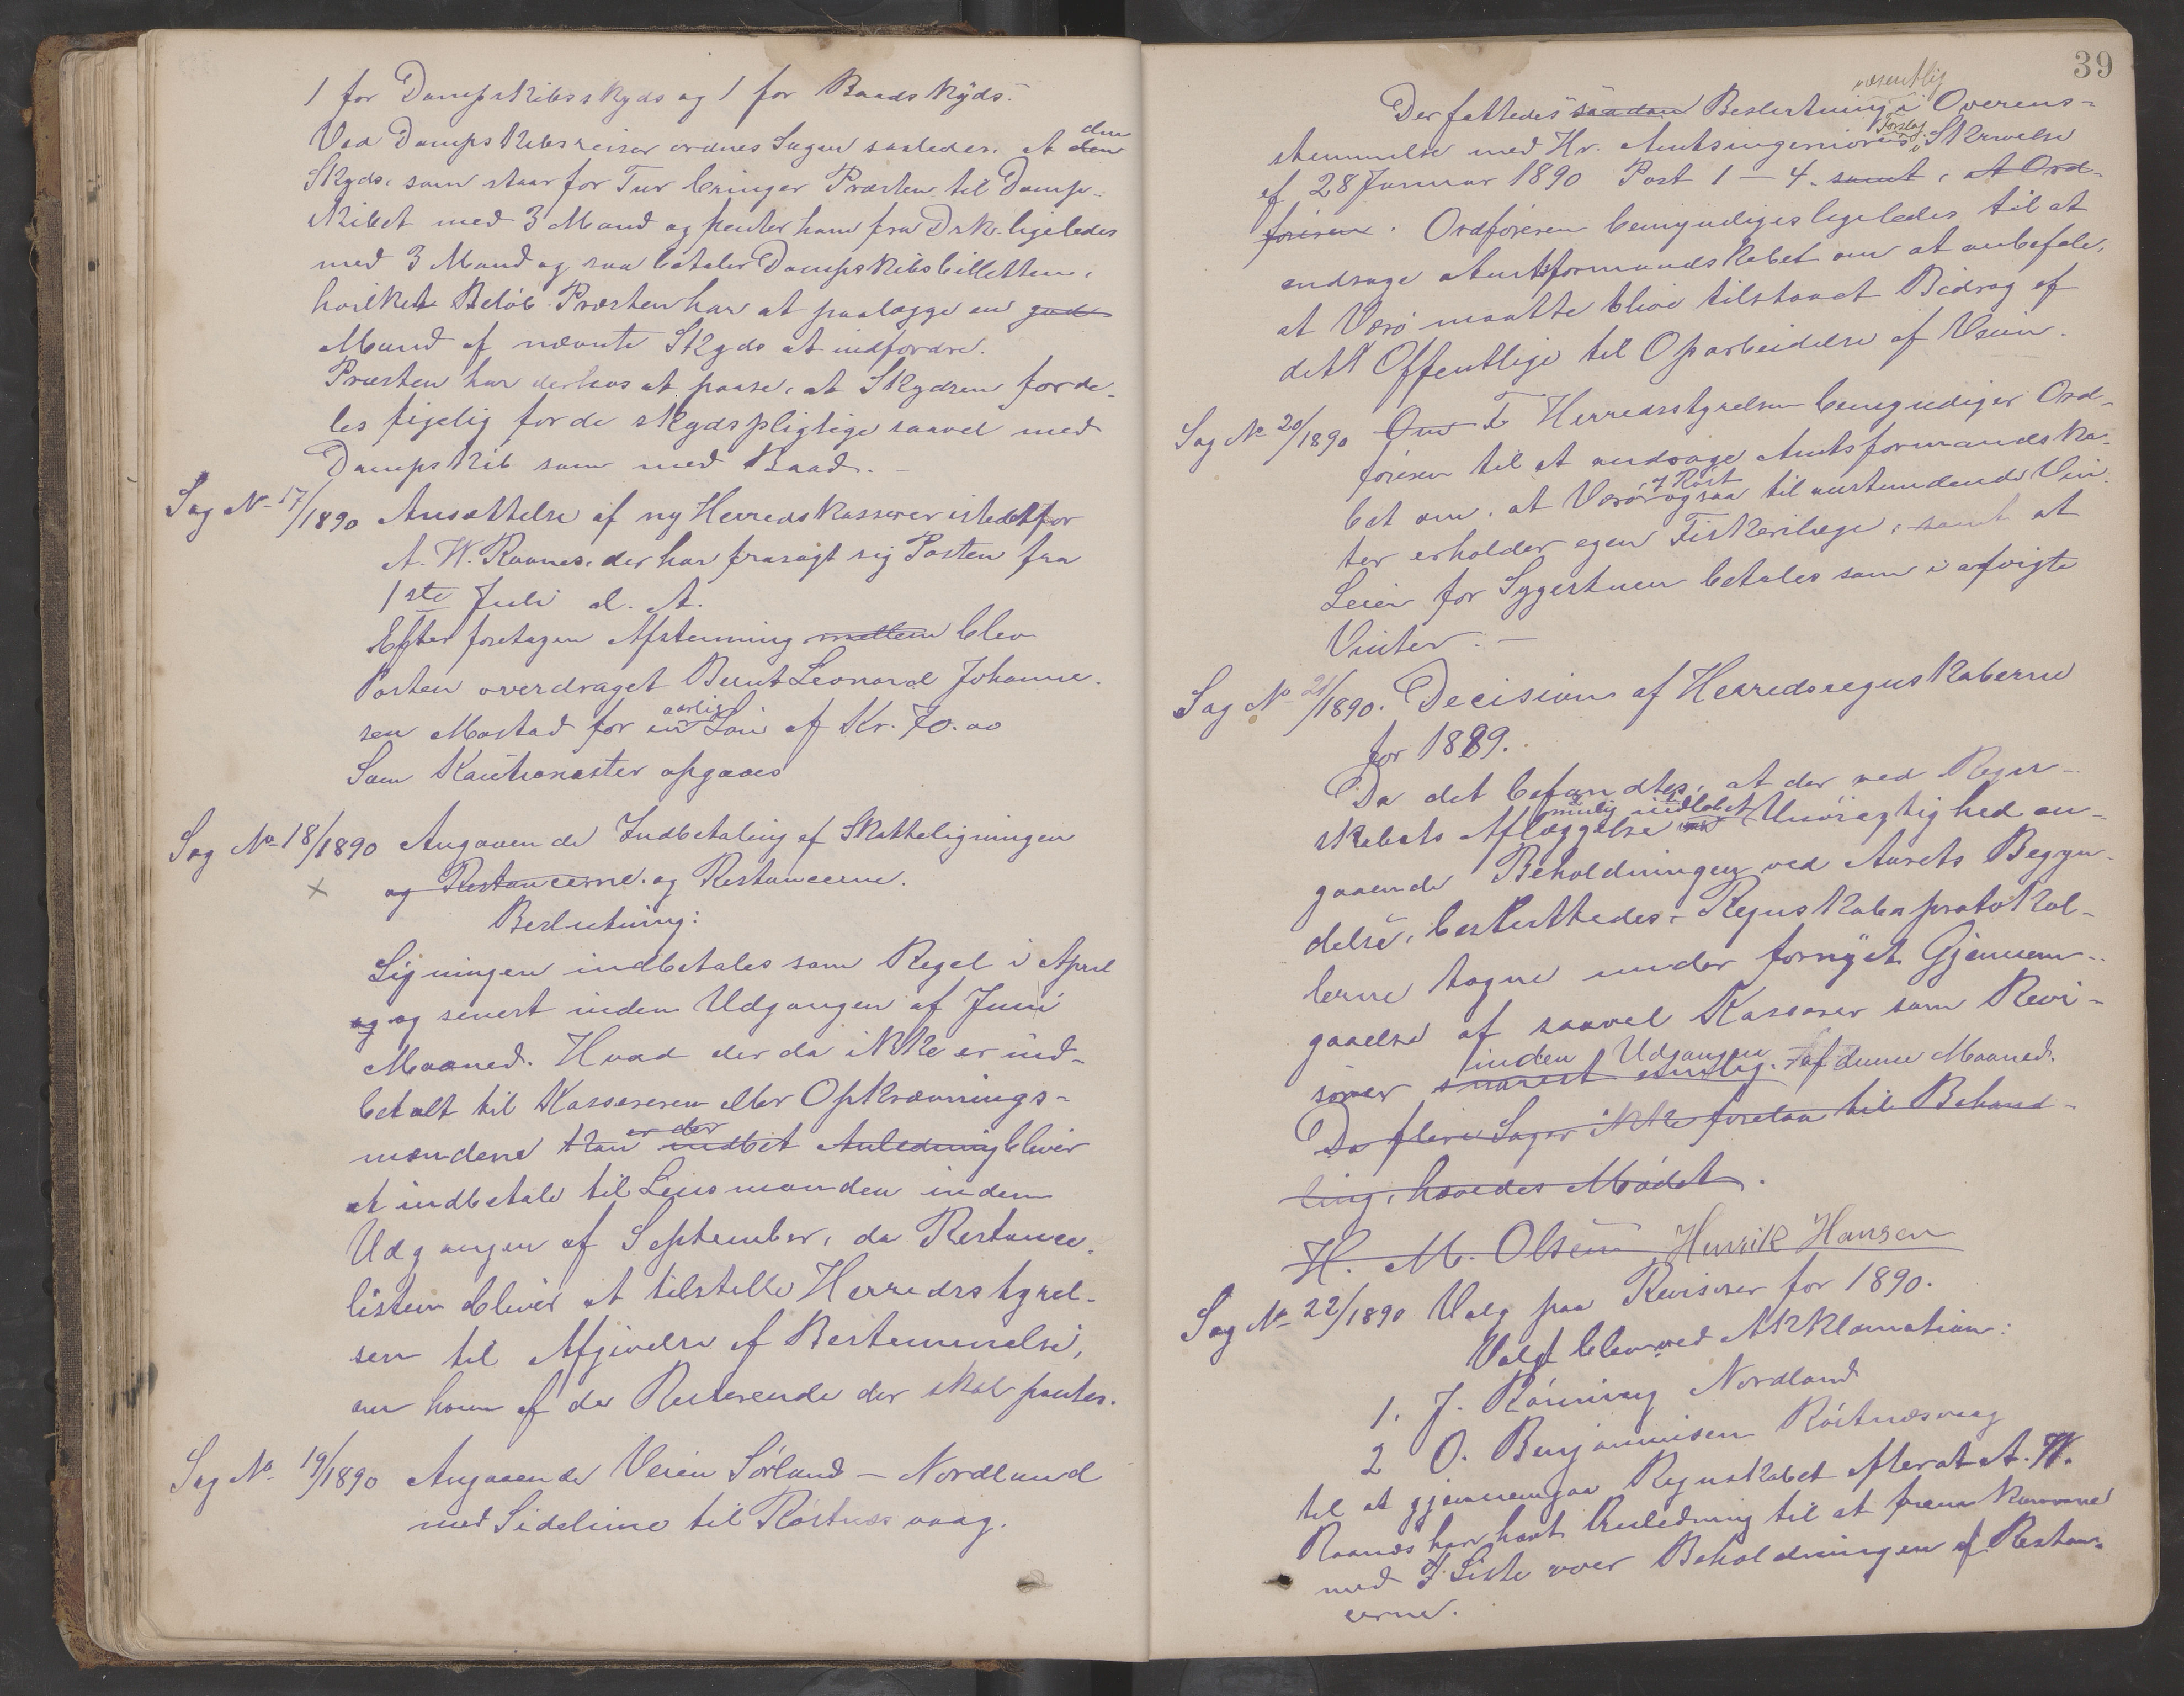 1 for Dampskibsskyds og 1 for Baadskyds.
Ved Dampskibsreiser ordnes Sagen saaledes, at den den
Skyds, som staar for Tur bringer Præsten til Damp-
skibet med 3 Mand og henter ham fra Dsk. ligeledes
med 3 Mand og saa betaler Dampskibsbilletten,
hvilket Beløb Præsten har at paalægge en
Mand af nævnte Skyds at indfordre.
Præsten har derhos at paase, at Skydsen forde-
les ligelig for de skydspligtige saavel med
Dampskib som med Baad. -
Sag No 17/1890 Ansættelse af ny Herredskasserer istedetfor
A. W. Raanes, der har frasagt sig Posten fra
1ste Juli d. A.
Efter foretagen Afstemning mellem blev
Posten overdraget Bernt Leonard Johanne-
sen Mostad for en aarlig Løn af Kr. 70.00
Som Kautionister opgaves
Sag No 18/1890 Angaaende Indbetaling af Skatteligningen
og Restancerne. og Restancerne.
Beslutning:
Ligningen indbetales som Regel i April
og og senest inden Udgangen af Juni
Maaned. Hvad der da ikke er ind-
betalt til Kassereren eller Opkrævnings-
mændene er der indbet Anledning bliver
at indbetale til Lensmanden inden
Udgangen af September, da Restance-
listen bliver at tilstille Herredsstyrel-
sen til Afgivelse af Bestemmelse,
om hvem af de Resterende der skal pantes.
Sag No 19/1890 Angaaende Veien Sørland - Nordland
med Sidelinie til Røstnesvaag.
39
Der fattedes saadan Beslutning væsentlig i Overens-
stemmelse med Hr. Amtsingeniørens Forslag i Skrivelse
af 28 Januar 1890 Post 1 - 4. samt, at Ord-
føreren. Ordføreren bemyndiges ligeledes til at
andrage Amtsformandskabet om at anbefale,
at Værø maatte blive tilstaaet Bidrag af
det Offentlige til Oparbeidelse af Veien.
Sag No 20/1890 Om Herredsstyrelsen bemyndiger Ord-
føreren til at andrage Amtsformandska-
bet om, at Værø og Røst ogsaa til anstundende Vin-
ter erholder egen Fiskerilæge, samt at
Leien for Sygestuen betales som i afvigte
Vinter. -
Sag No 21/1890. Decision af Herredsregnskaberne
for 1889.
Da det befandtes, at der ved Regn-
skabets Aflæggelse mulig indløbet Unøiagtighed an-
gaaende Beholdningen ved Aarets Begyn-
delse, besluttedes Regnskabsprotokol-
lerne tagne under fornyet Gjennem-
gaaelse af saavel Kasserer som Revi-
sorer snarest inden Udgangen af denne Maaned.
Da flere Sager ikke forelaa til Behand-
ling, hævedes Mødet.
H. M. Olsen Henrik Hansen
Sag No 22/1890 Valg paa Revisorer for 1890.
Valgt blev ved Akklamation:
1. J. Rønning Nordland
2 O. Benjaminsen Røstnesvaag
til at gjennemgaa Regnskabet efterat A. W.
Raanes har havt Anledning til at fremkomme
med Liste over Beholdningen af Restan-
cerne.